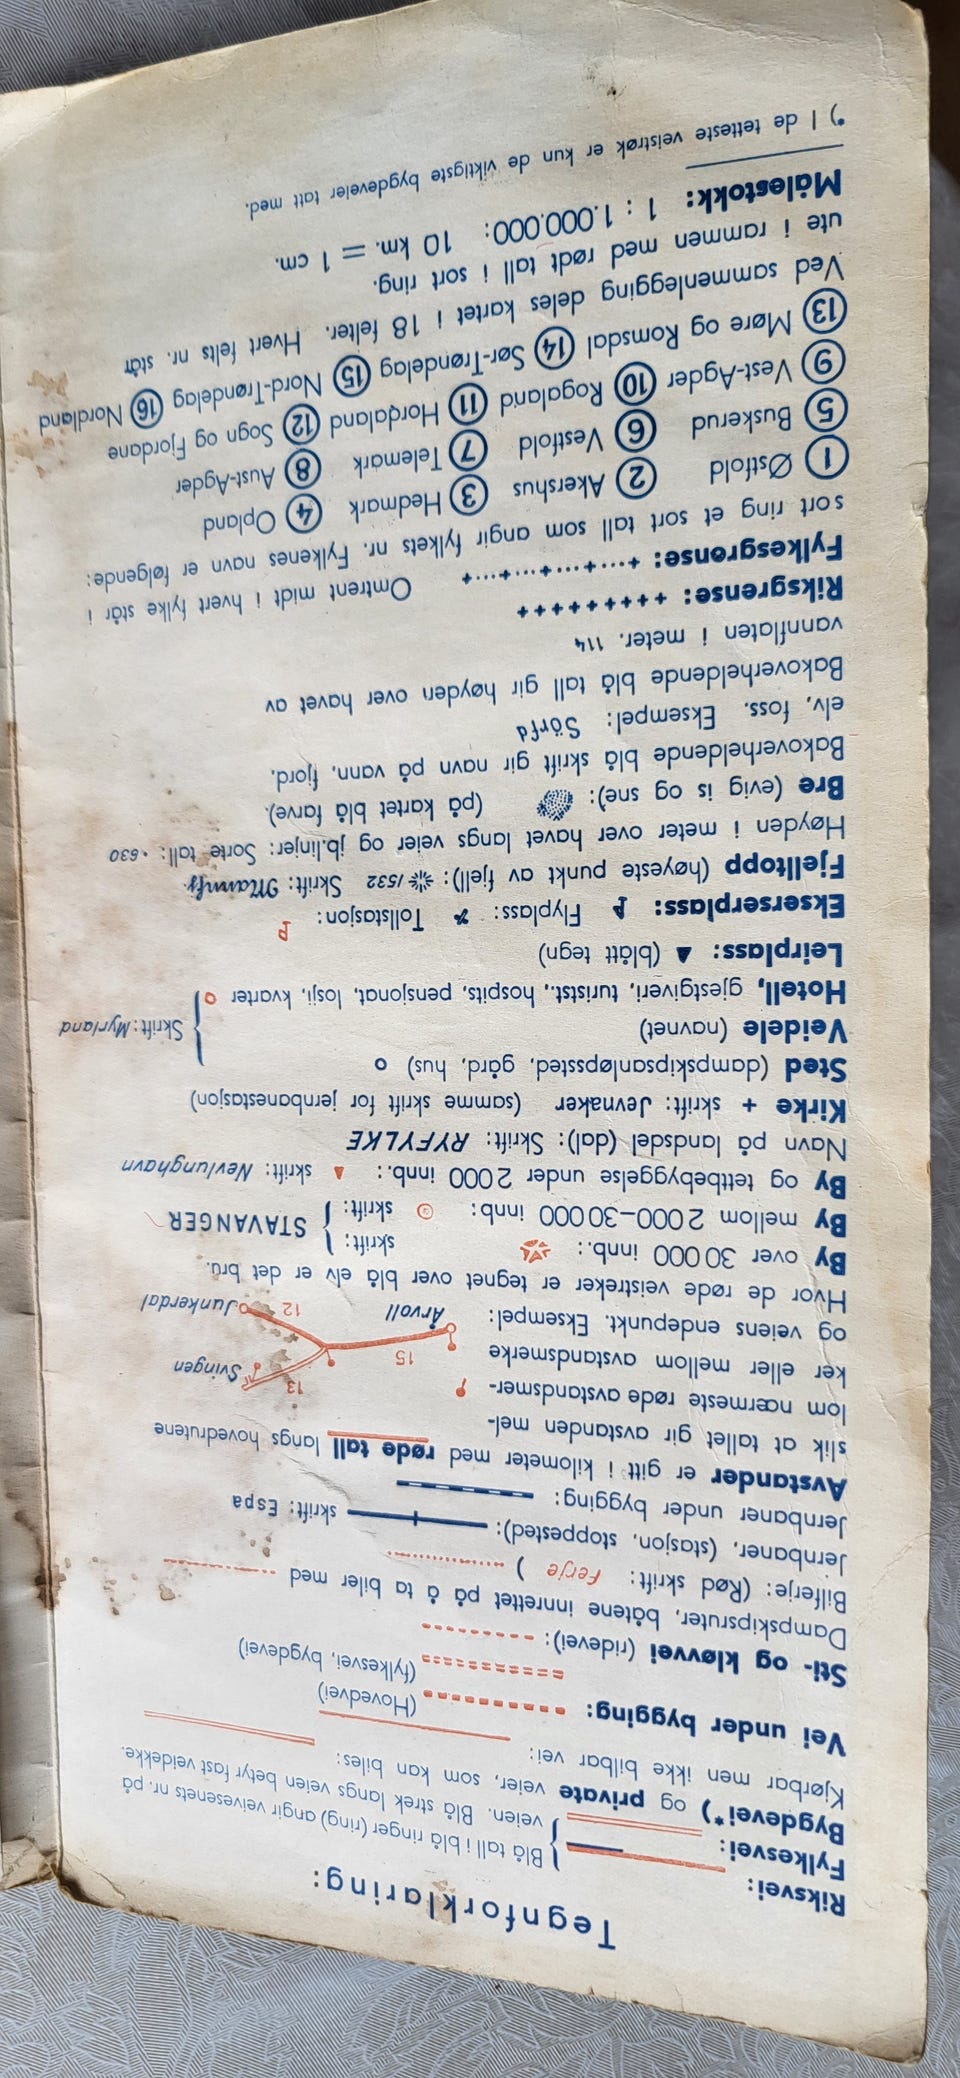 Tegnforklaring:
Riksvei:
Fylkesvei:
Bygdevei*) og private veier, som kan biles:
Blå tall i blå ringer (ring) angir veivesenets nr. på
veien. Blå strek langs veien betyr fast veidekke.
Kjørbar men ikke bilbar vei:
Vei under bygging: (Hovedvei)
(fylkesvei, bygdevei)
Sti- og kløvvei (ridevei):
Dampskipsruter, båtene innrettet på å ta biler med
Bilferje: (Rød skrift: Ferje )
Jernbaner, (stasjon, stoppested): skrift: Espa
Jernbaner under bygging:
Avstander er gitt i kilometer med røde tall langs hovedrutene
slik at tallet gir avstanden mel-
lom nærmeste røde avstandsmer-
ker eller mellom avstandsmerke
og veiens endepunkt. Eksempel:
13 Svingen
15
Årvoll 12 Junkerdal
Hvor de røde veistreker er tegnet over blå elv er det bru.
By over 30 000 innb.: skrift:
By mellom 2 000–30 000 innb: skrift: STAVANGER
By og tettbebyggelse under 2 000 innb.: skrift: Nevlunghavn
Navn på landsdel (dal): Skrift: RYFYLKE
Kirke + skrift: Jevnaker (samme skrift for jernbanestasjon)
Sted (dampskipsanløpssted, gård, hus) o
Veidele (navnet)
Skrift: Myrland
Hotell, gjestgiveri, turistst., hospits, pensjonat, losji, kvarter
Leirplass: (blått tegn)
Ekserserplass: Flyplass: Tollstasjon:
Fjelltopp (høyeste punkt av fjell): 1532 Skrift:
Høyden i meter over havet langs veier og jb.linjer: Sorte tall: . 630
Bre (evig is og sne): (på kartet blå farve).
Bakoverheldende blå skrift gir navn på vann, fjord,
elv, foss. Eksempel: Sörfd
Bakoverheldende blå tall gir høyden over havet av
vannflaten i meter. 114
Riksgrense: +++++++++
Fylkesgrense: +...+...+...+...+ Omtrent midt i hvert fylke står i
sort ring et sort tall som angir fylkets nr. Fylkenes navn er følgende:
1 Østfold 2 Akershus 3 Hedmark 4 Opland
5 Buskerud 6 Vestfold 7 Telemark 8 Aust-Agder
9 Vest-Agder 10 Rogaland 11 Hordaland 12 Sogn og Fjordane
13 Møre og Romsdal 14 Sør-Trøndelag 15 Nord-Trøndelag 16 Nordland
Ved sammenlegging deles kartet i 18 felter. Hvert felts nr. står
ute i rammen med rødt tall i sort ring.
Målestokk: 1 : 1.000.000: 10 km. = 1 cm.
*) I de tetteste veistrøk er kun de viktigste bygdeveier tatt med.